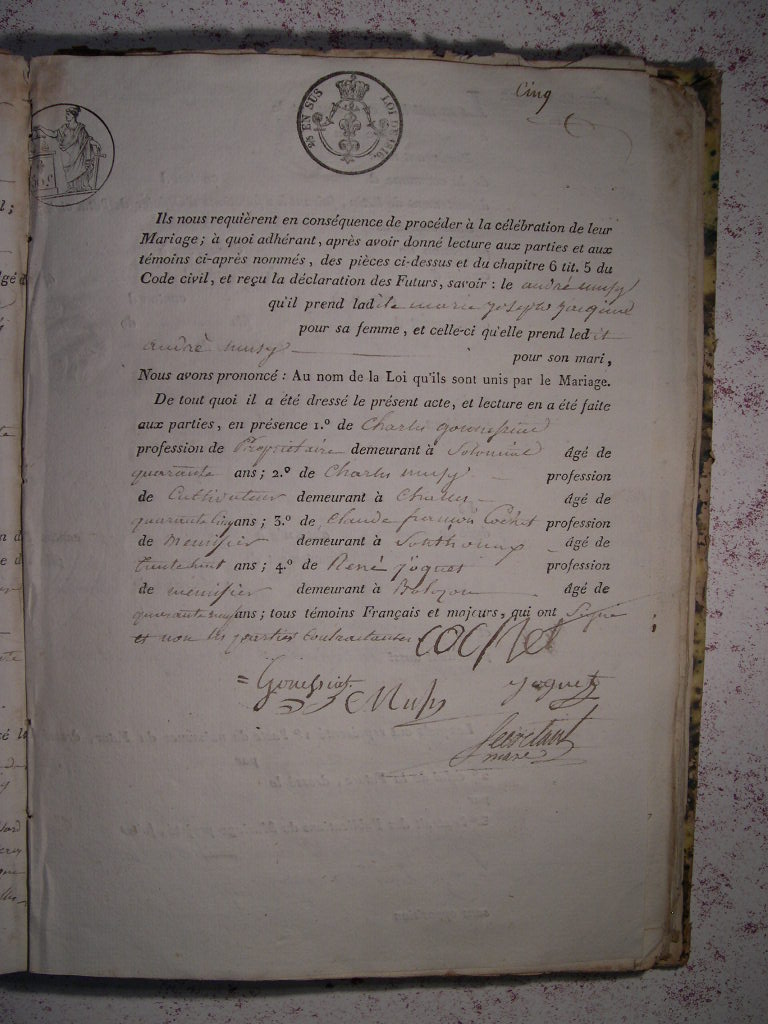 Cinq
25 EN SUS LOI DE 1816.
Ils nous requièrent en conséquence de procéder à la célébration de leur
Mariage; à quoi adhérant, après avoir donné lecture aux parties et aux
témoins ci-après nommés, des pièces ci-dessus et du chapitre 6 tit. 5 du
Code civil, et reçu la déclaration des Futurs, savoir : le andré musy
qu'il prend ladite marie joseph
pour sa femme, et celle-ci qu'elle prend ledit
andré musy pour son mari,
Nous avons prononcé : Au nom de la Loi qu'ils sont unis par le Mariage.
De tout quoi il a été dressé le présent acte, et lecture en a été faite
aux parties, en présence 1.º de Charles
profession de Propriétaire demeurant à âgé de
quarante ans; 2.º de Charles musy profession
de Cultivateur demeurant à âgé de
quarante cinq ans; 3.º de Claude françois Cochet profession
de meunier demeurant à âgé de
trente huit ans; 4.º de René joguet profession
de meunier demeurant à âgé de
quarante ans; tous témoins Français et majeurs, qui ont Signé
et non les parties contractantes COCHET
Musy Joguet
Secretant
maire